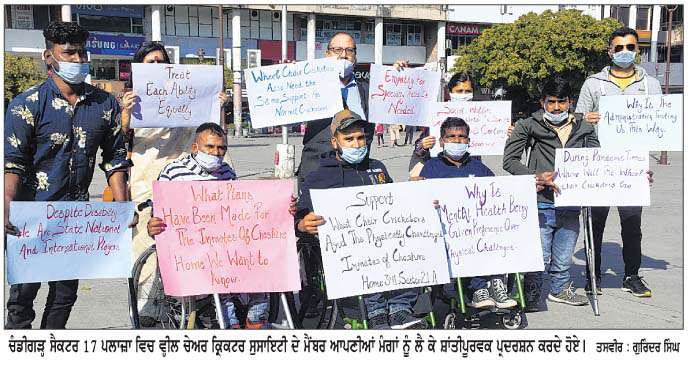 SAMSUNG
CANAM
Treat
Each Ability
Equally
Wheel Chair Cricketers
Also Need the
Same Support As
Normal Cricketers
Empathy For
Special Need is
Needed
Why Is The
Administration treating
Us This Way.
During Pandemic Times
Where Will the Wheel
Chair Cricketers Go
Despite Disability
We Are State National
And International Players
What Plans
Have Been Made For
The Inmates Of Cheshire
Home We Want to
Know.
Support
Wheel Chair Cricketers
And The Physically Challenged
Inmates of Cheshire
Home Sector 21 A
Why Is
Mental Health Being
Given Preference Over
Physical Challenges
ਚੰਡੀਗੜ੍ਹ ਸੈਕਟਰ 17 ਪਲਾਜ਼ਾ ਵਿਚ ਵ੍ਹੀਲ ਚੇਅਰ ਕ੍ਰਿਕਟਰ ਸੁਸਾਇਟੀ ਦੇ ਮੈਂਬਰ ਆਪਣੀਆਂ ਮੰਗਾਂ ਨੂੰ ਲੈ ਕੇ ਸ਼ਾਂਤੀਪੂਰਵਕ ਪ੍ਰਦਰਸ਼ਨ ਕਰਦੇ ਹੋਏ। ਤਸਵੀਰ : ਗੁਰਿੰਦਰ ਸਿੰਘ